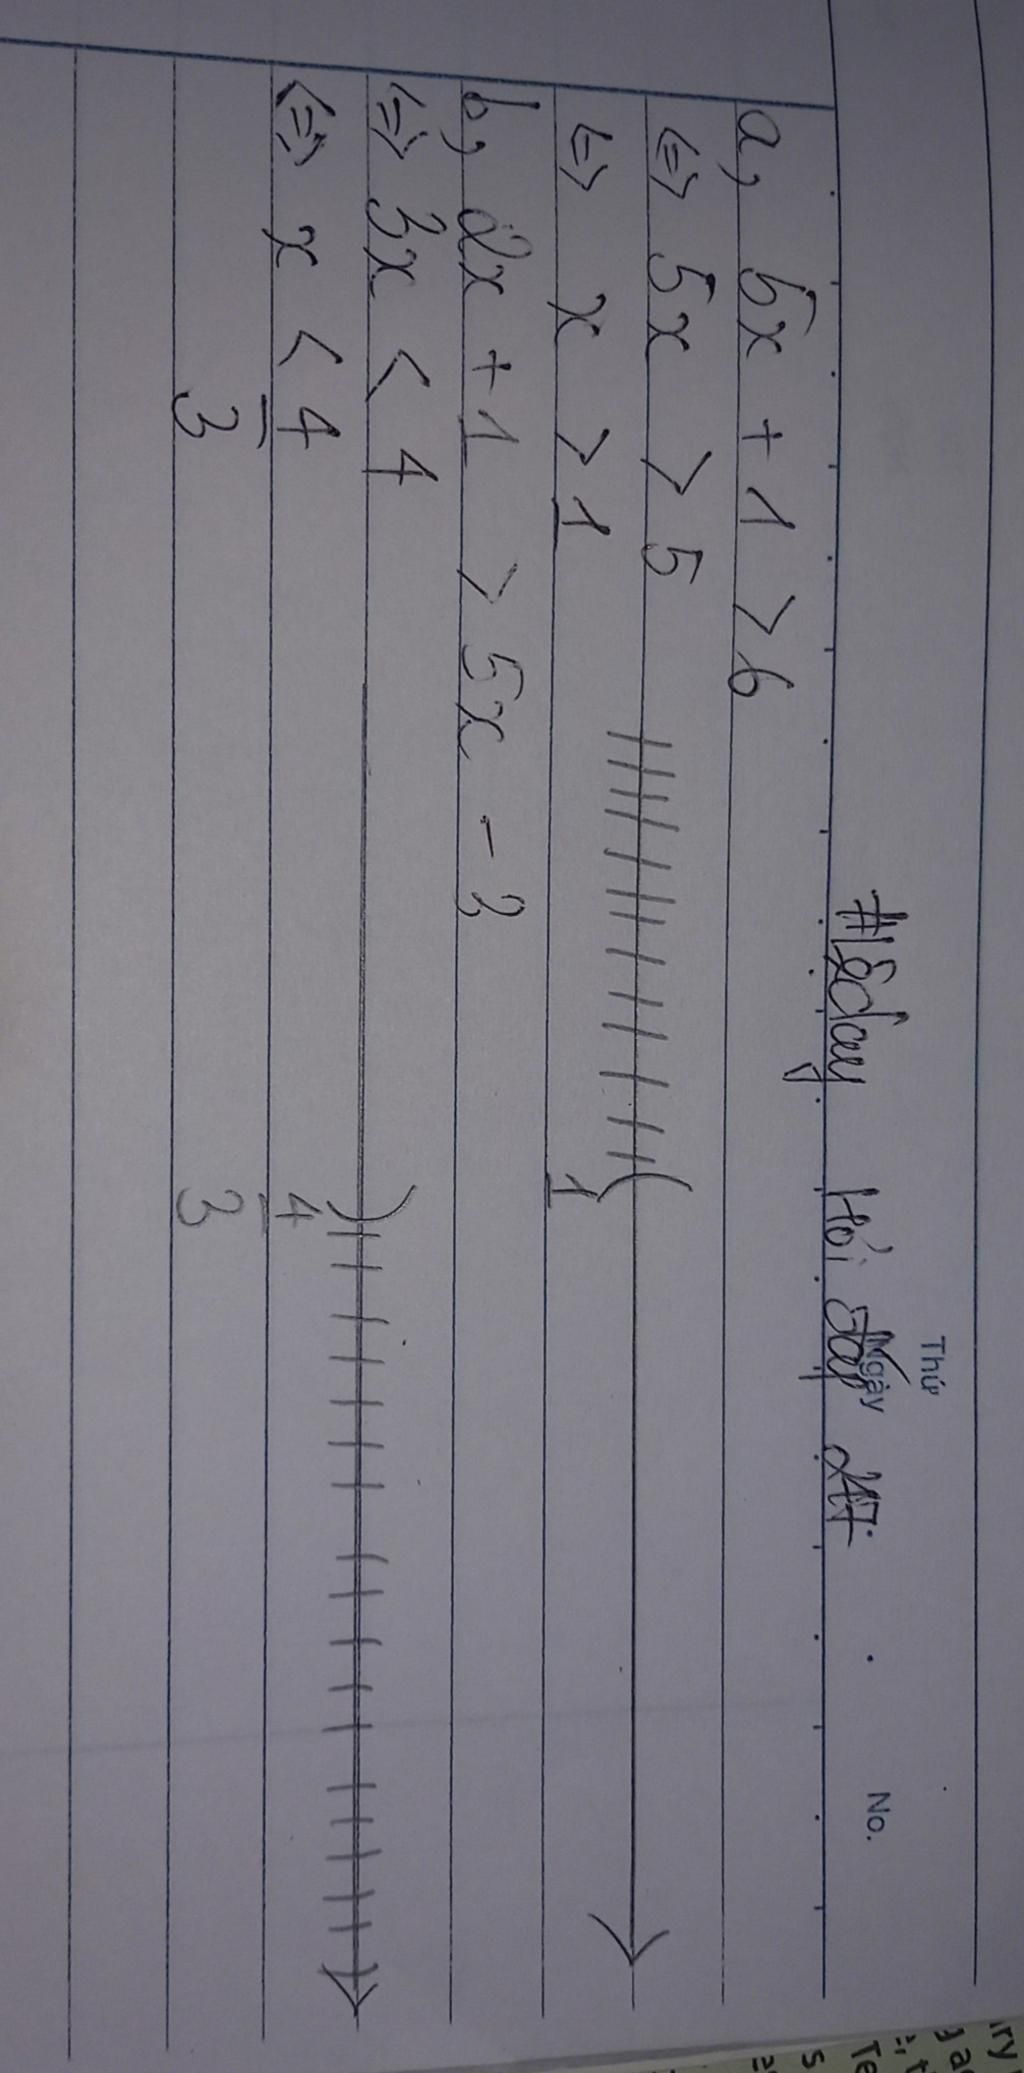 Thứ
Ngày
No.
#18day Hỏi đáp 247
a, 5x + 1 > 6
<=> 5x > 5
<=> x > 1
1
b, 2x + 1 > 5x - 3
<=> 3x < 4
<=> x < 4
3
4
3